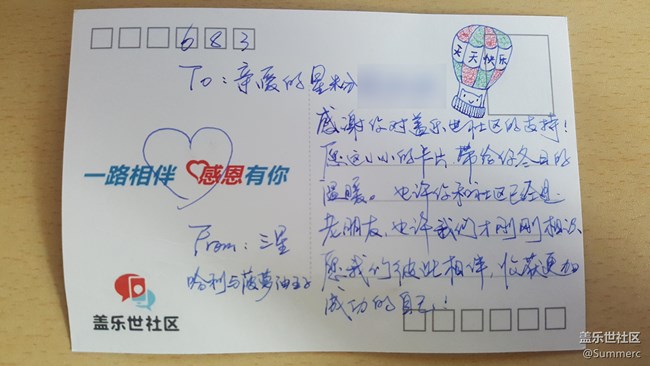 683
To：亲爱的星粉
天天快乐
感谢你对盖乐世社区的支持！
愿这小小的卡片带给你冬日的
温暖。也许你和社区已经是
老朋友，也许我们才刚刚相识
愿我们彼此相伴，收获更加
成功的自己！
一路相伴 感恩有你
From：三星
哈利与菠萝油王子
盖乐世社区
盖乐世社区
@Summerc